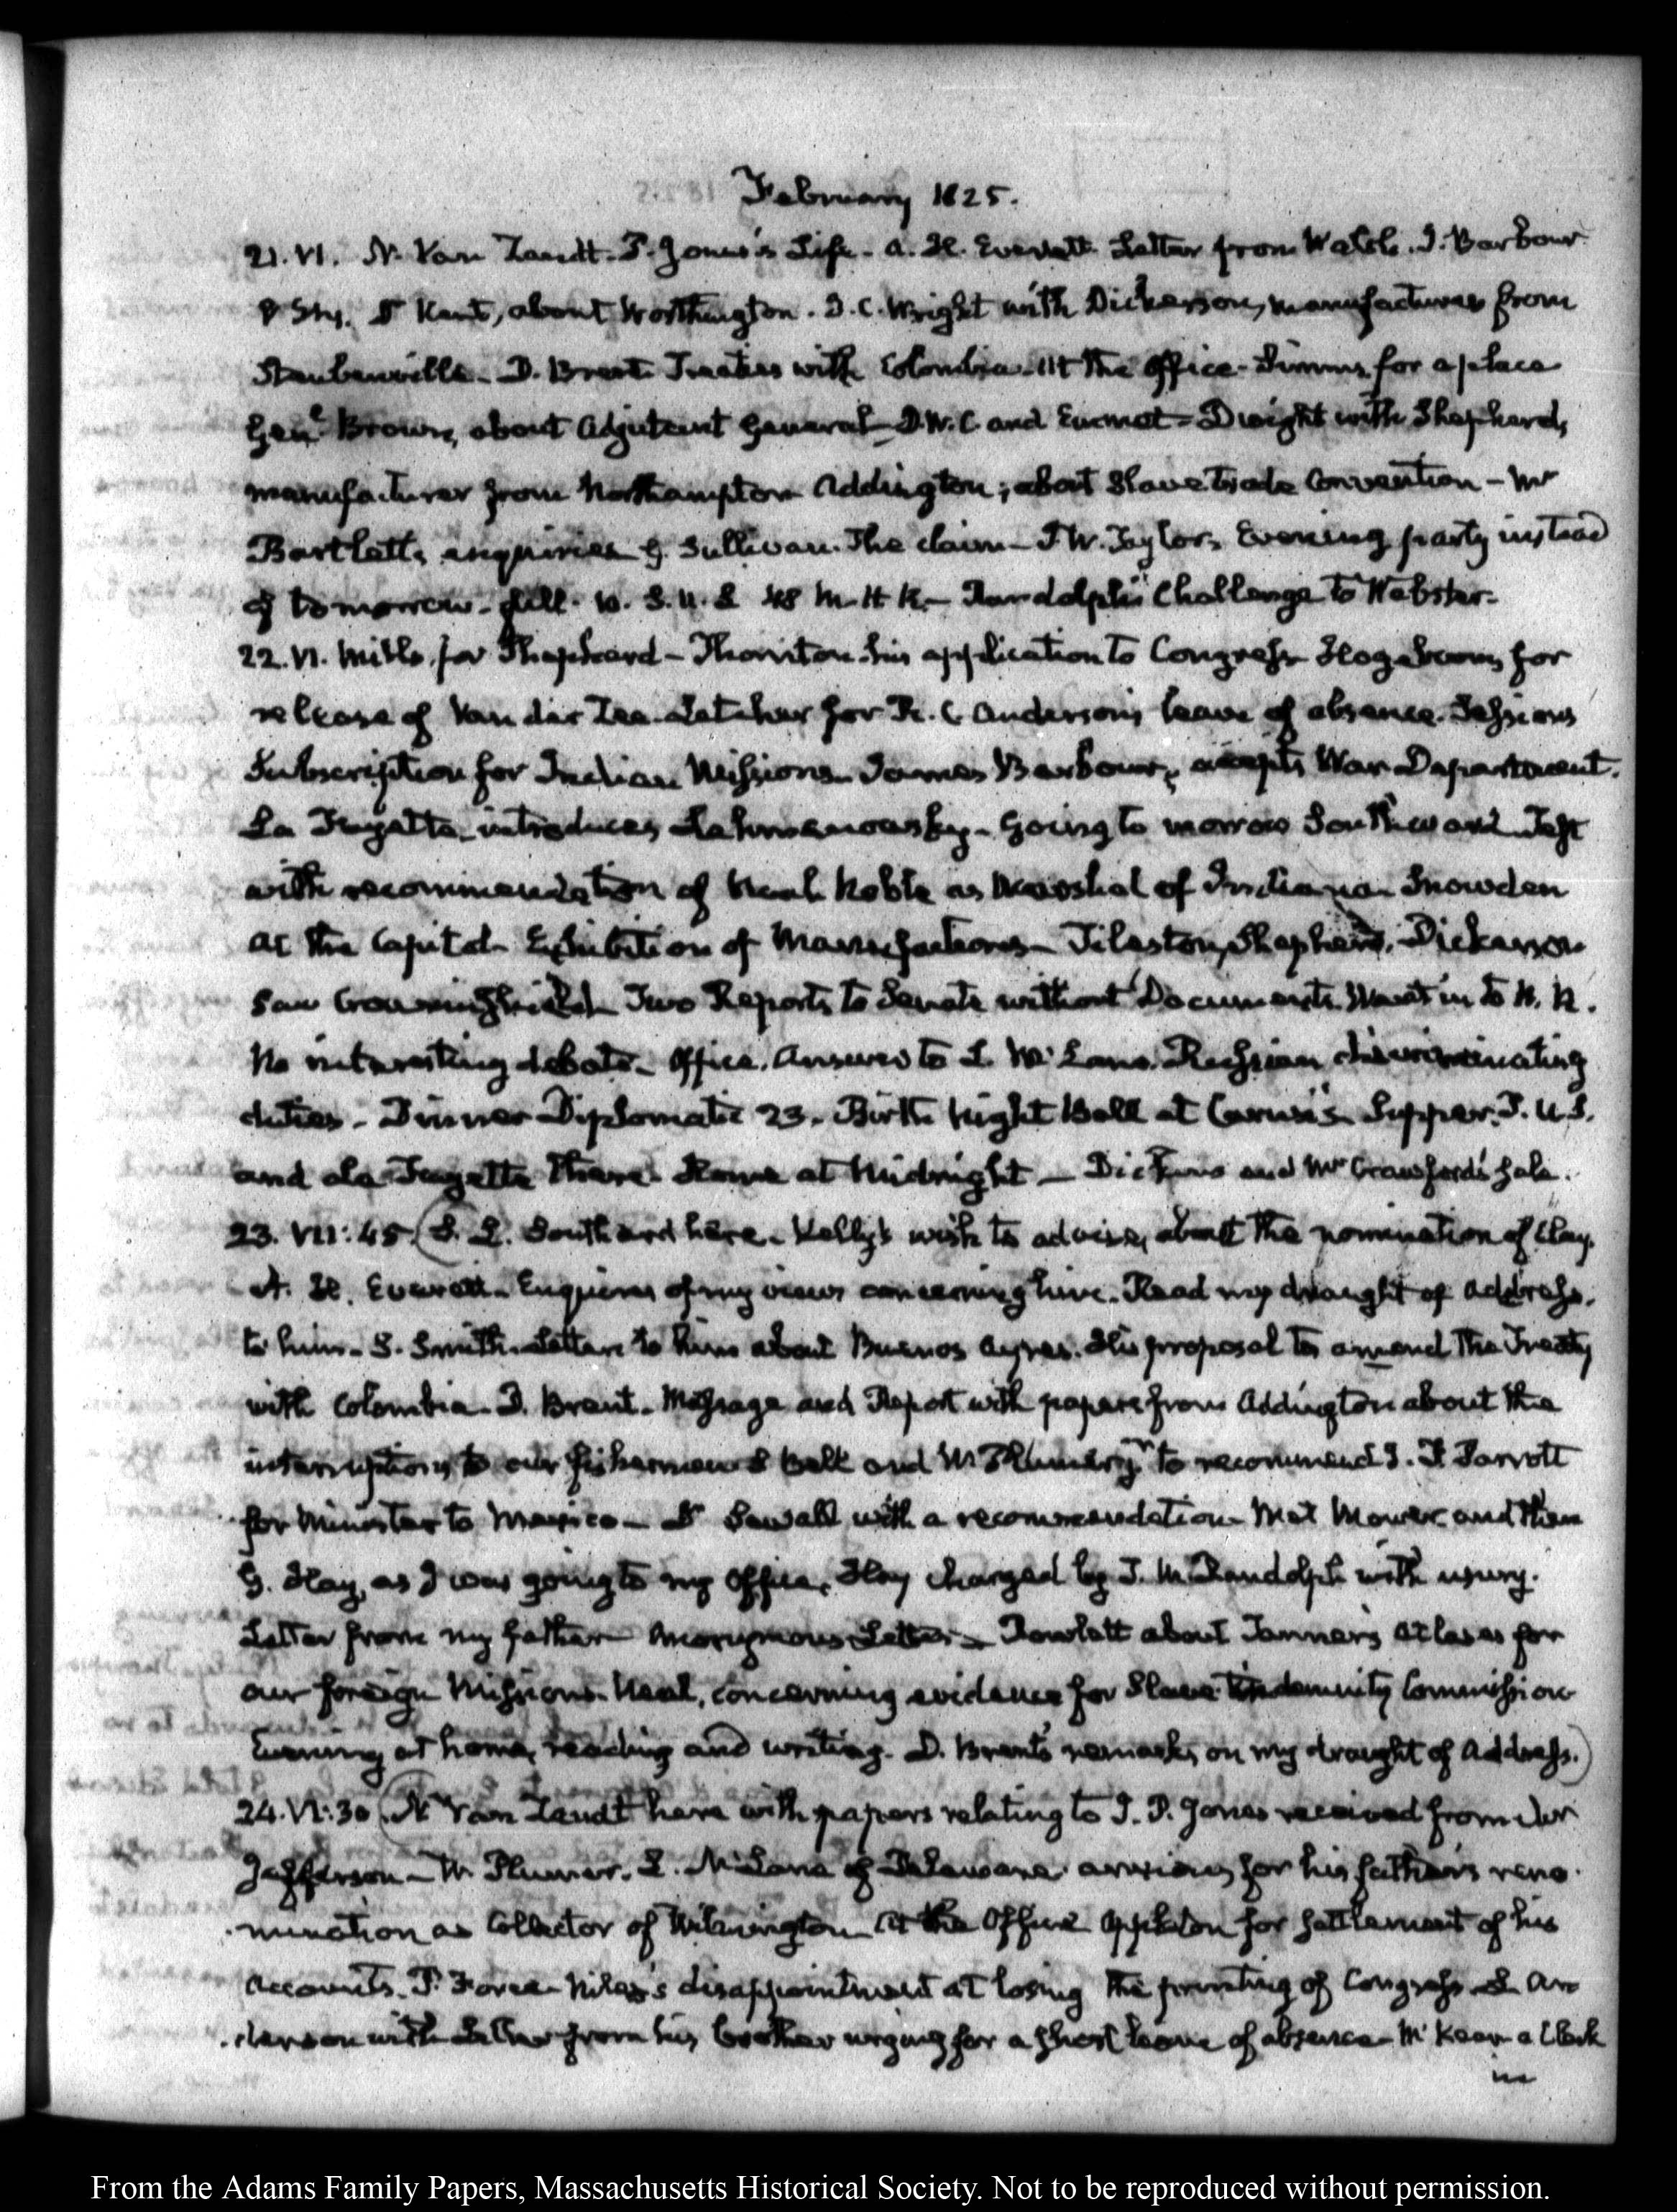 February 1825.
21. VI. N. Van Zandt. P. Jones's Life. A. H. Everett. Letter from Walsh. J. Barbour
Dr Kent, about Worthington. J. C. Wright with Dickerson, manufacturer from
Steubenville. D. Brent. Treaties with Colombia. At the Office. Simms, for a place
Genl. Brown, about Adjutant General. D.W.C. and Emmet. Dwight with Shepherd,
manufacturer from Northampton. Addington; about Slave trade Convention. Mr
Bartlett, enquiries G. Sullivan. The claim. J W. Taylor. Evening party instead
of tomorrow. full. 48 M. H R. Randolph's Challenge to Webster.
22. VI. Mills, for Shepheard. Thornton. his application to Congress. Hogeboom, for
release of Van der Zee. Letcher for R. C. Anderson's leave of absence. Sessions
Subscription for Indian Missions. James Barbour, accepts War Department.
La Fayette, introduces Going to morrow Southward. Test
with recommendation of Noah Noble as Marshal of Indiana. Snowden
At the Capitol. Exhibition of Manufactures. Tileston, Shepherd, Dickerson
Saw Crowninshield. Two Reports to Senate without Documents. Went in to H. R.
No interesting debate. Office. Answer to L. McLane. Russian discriminating
duties. Dinner Diplomatic 23. Birth Night Ball at Carusi's. Supper. P. U.S.
and La Fayette there. Home at Midnight. Dickins and Mr Crawford's sale.
23. VII:45. (S. L. Southard here. Kelly's wish to advise, about the nomination of Clay.
A. H. Everett. Enquires of my views concerning him. Read my draught of Address,
to him. S. Smith. Letters to him about Buenos Ayres. His proposal to amend the Treaty
with Colombia. D. Brent. Message and Report with papers from Addington about the
interruptions to our fishermen. S Bell and W Plumer jr to recommend J. F Parrott
for Minister to Mexico. Dr Sewall with a recommendation. Met Mower and then
G. Hay, as I was going to my Office. Hay charged by T. M. Randolph with usury.
Letter from my father. Anonymous Letter. Rowlett about Tanner's Atlases for
our foreign Missions. Neal, concerning evidence for Slave Indemnity Commission
Evening at home, reading and writing. D. Brent's remarks on my draught of Address.)
24. VI:30. (N Van Zandt here with papers relating to J. P. Jones received from Mr
Jefferson. W. Plumer. L. McLane of Delaware anxious for his father's reno-
mination as Collector of Wilmington. At the Office Appleton for settlement of his
Accounts. P. Force. Niles's disappointment at losing the printing of Congress. An-
derson with Letter from his brother urging for a short leave of absence. McKean a Clerk
in
From the Adams Family Papers, Massachusetts Historical Society. Not to be reproduced without permission.